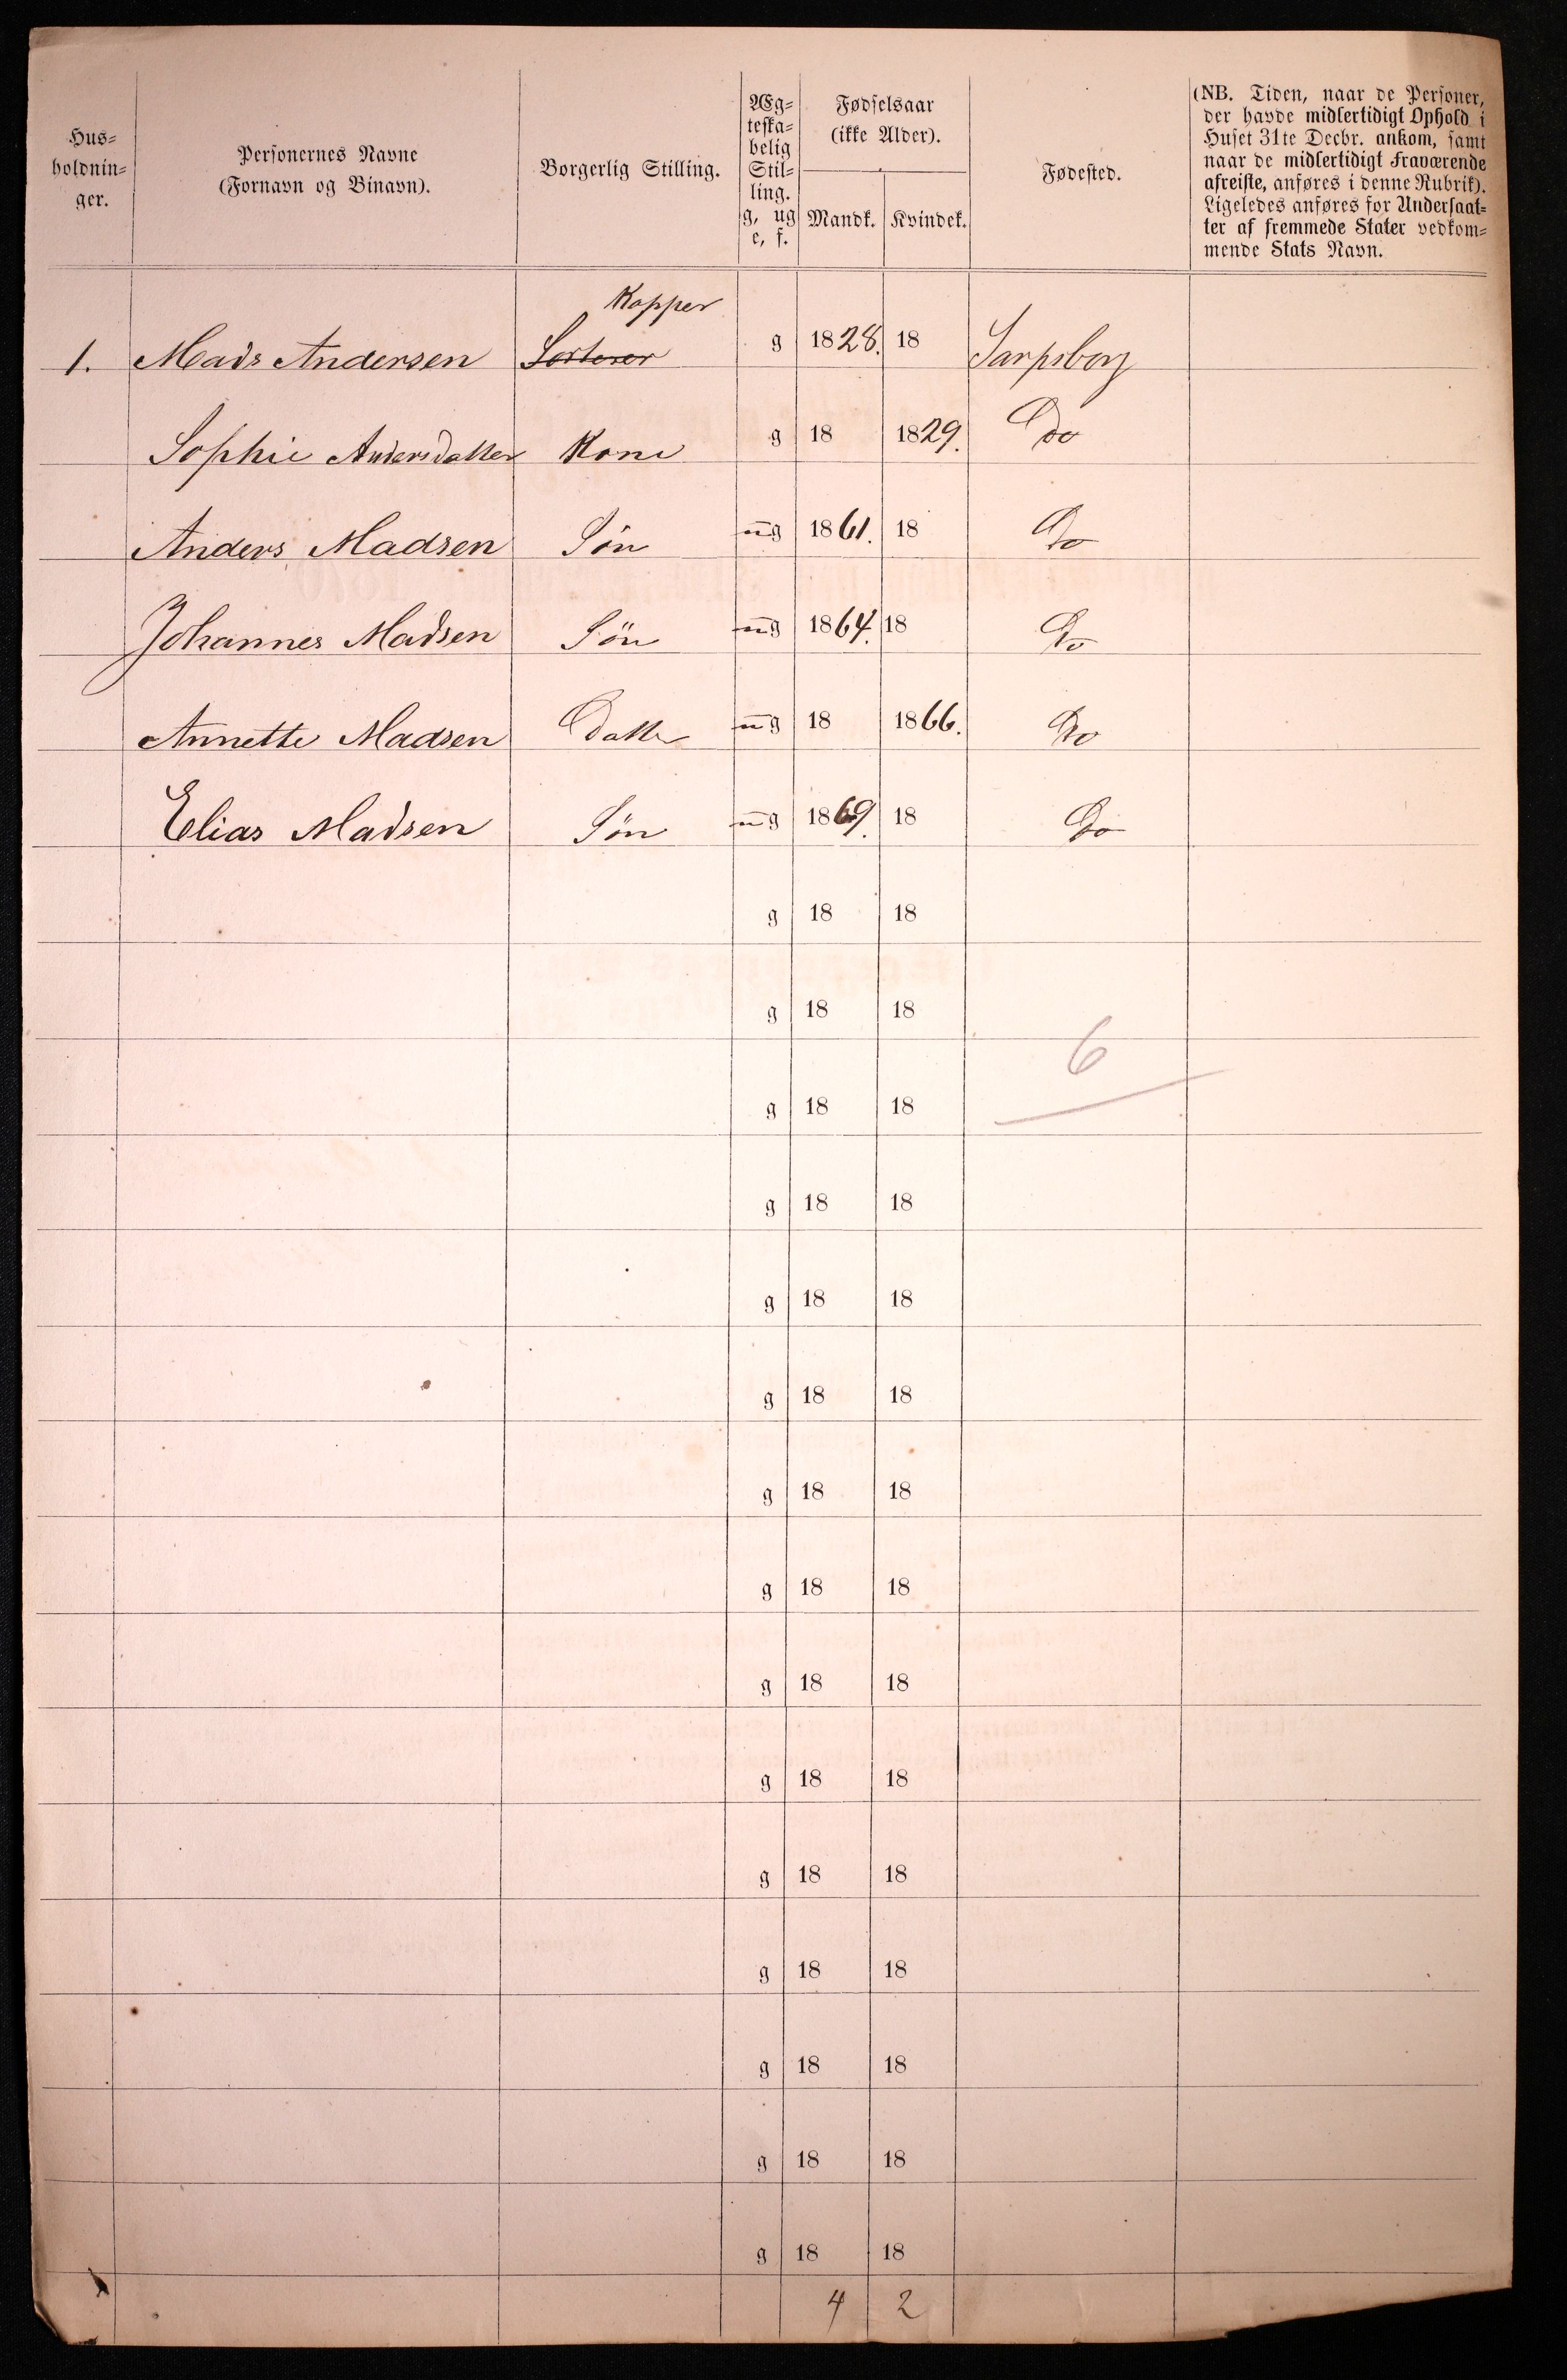 Hus=
holdnin=
ger.
Personernes Navne
(Fornavn og Binavn).
Borgerlig Stilling.
Æg=
teska=
belig
Stil=
ling.
g, ug
e, f.
Fødselsaar
(ikke Alder).
Mandk. Kvindek.
Fødested.
(NB. Tiden, naar de Personer,
der havde midlertidigt Ophold i
Huset 31te Decbr. ankom, samt
naar de midlertidigt Fraværende
afreiste, anføres i denne Rubrik).
Ligeledes anføres for Undersaat=
ter af fremmede Stater vedkom=
mende Stats Navn.
Kopper
1. Mads Andersen Sorterer g 1828. 18 Sarpsborg
Sophie Andersdatter Kone g 18 1829. Do
Anders Madsen Søn ug 1861. 18 Do
Johannes Madsen Søn ug 1864. 18 Do
Annette Madsen Datter ug 18 1866. Do
Elias Madsen Søn ug 1869. 18 Do
g 18 18
g 18 18
6
g 18 18
g 18 18
g 18 18
g 18 18
g 18 18
g 18 18
g 18 18
g 18 18
g 18 18
g 18 18
g 18 18
g 18 18
g 18 18
4 2